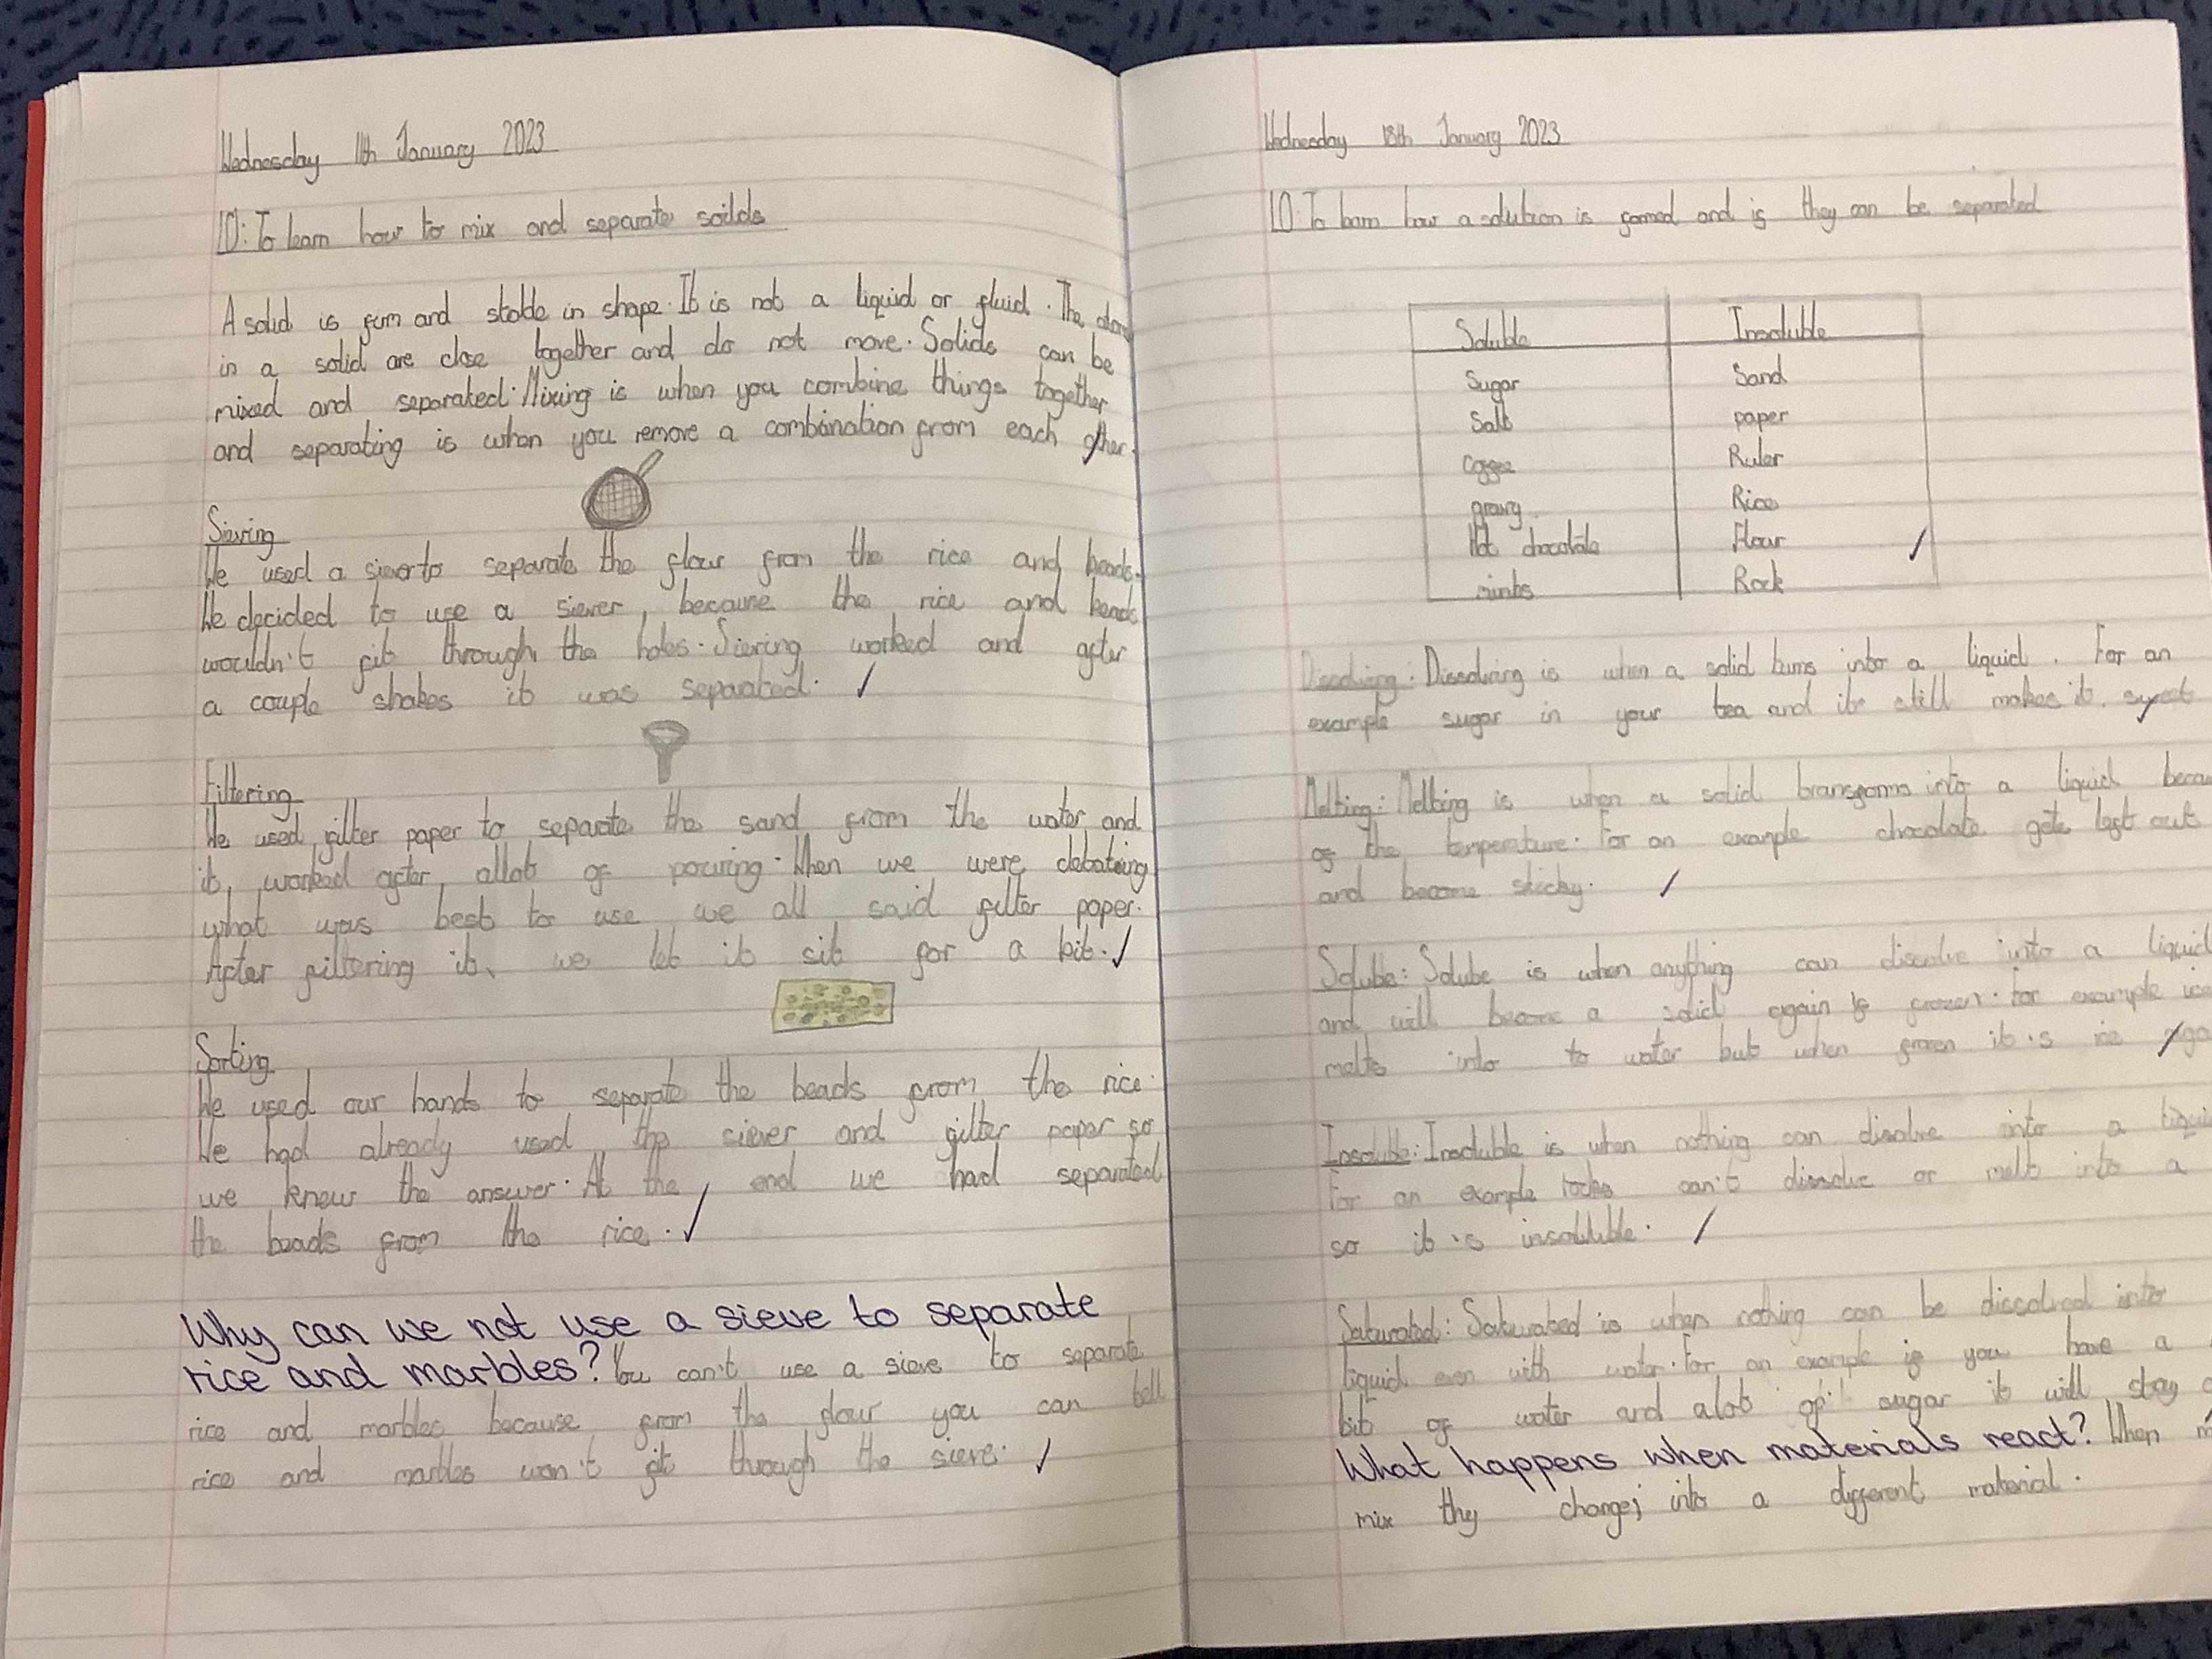 Wednesday 11th January 2023
LO: To learn how to mix and separate soilds
A solid is firm and stable in shape. It is not a liquid or fluid. The
in a solid are close together and do not move. Solids can be
mixed and separated. Mixing is when you combine things together
and separating is when you remove a combination from each other.
Sieving
We used a siever to separate the flour from the rice and beads.
We decided to use a siever, because the rice and beads
wouldn't fit through the holes. Sieving worked and after
a couple shakes it was separated.
Filtering
We used filter paper to separate the sand from the water and
it worked after allot of pouring. When we were debating
what was best to use we all said filter paper.
After filtering it, we let it sit for a bit.
Sorting
We used our hands to separate the beads from the rice.
We had already used the siever and filter paper so
we knew the answer. At the end we had separated
the beads from the rice.
Why can we not use a sieve to separate
rice and marbles? You can't use a sieve to separate
rice and marbles because from the flour you can tell
rice and marbles won't fit through the sieve.
Wednesday 18th January 2023
LO: To learn how a solution is formed and if they can be separated
Soluble Insoluble
Sugar Sand
Salt paper
Coffee Ruler
gravy Rice
Hot chocolate Flour
Rock
Dissolving: Dissolving is when a solid turns into a liquid. For an
example sugar in your tea and it still makes it sweet
Melting: Melting is when a solid transforms into a liquid
of the temperature. For an example chocolate gets left out
and become sticky.
Solube: Solube is when anything can dissolve into a liquid
and will become a solid again if frozen. For example ice
melts into to water but when frozen it's ice
Insoluble: Insoluble is when nothing can disolve into a
For an example rocks can't dissolve or melt into a
so it's insoluble.
Saturated: Saturated is when nothing can be dissolved into
liquid even with water. For an example if you have a
bit of water and alot of sugar it will stay
What happens when materials react? When
mix they change into a different material.